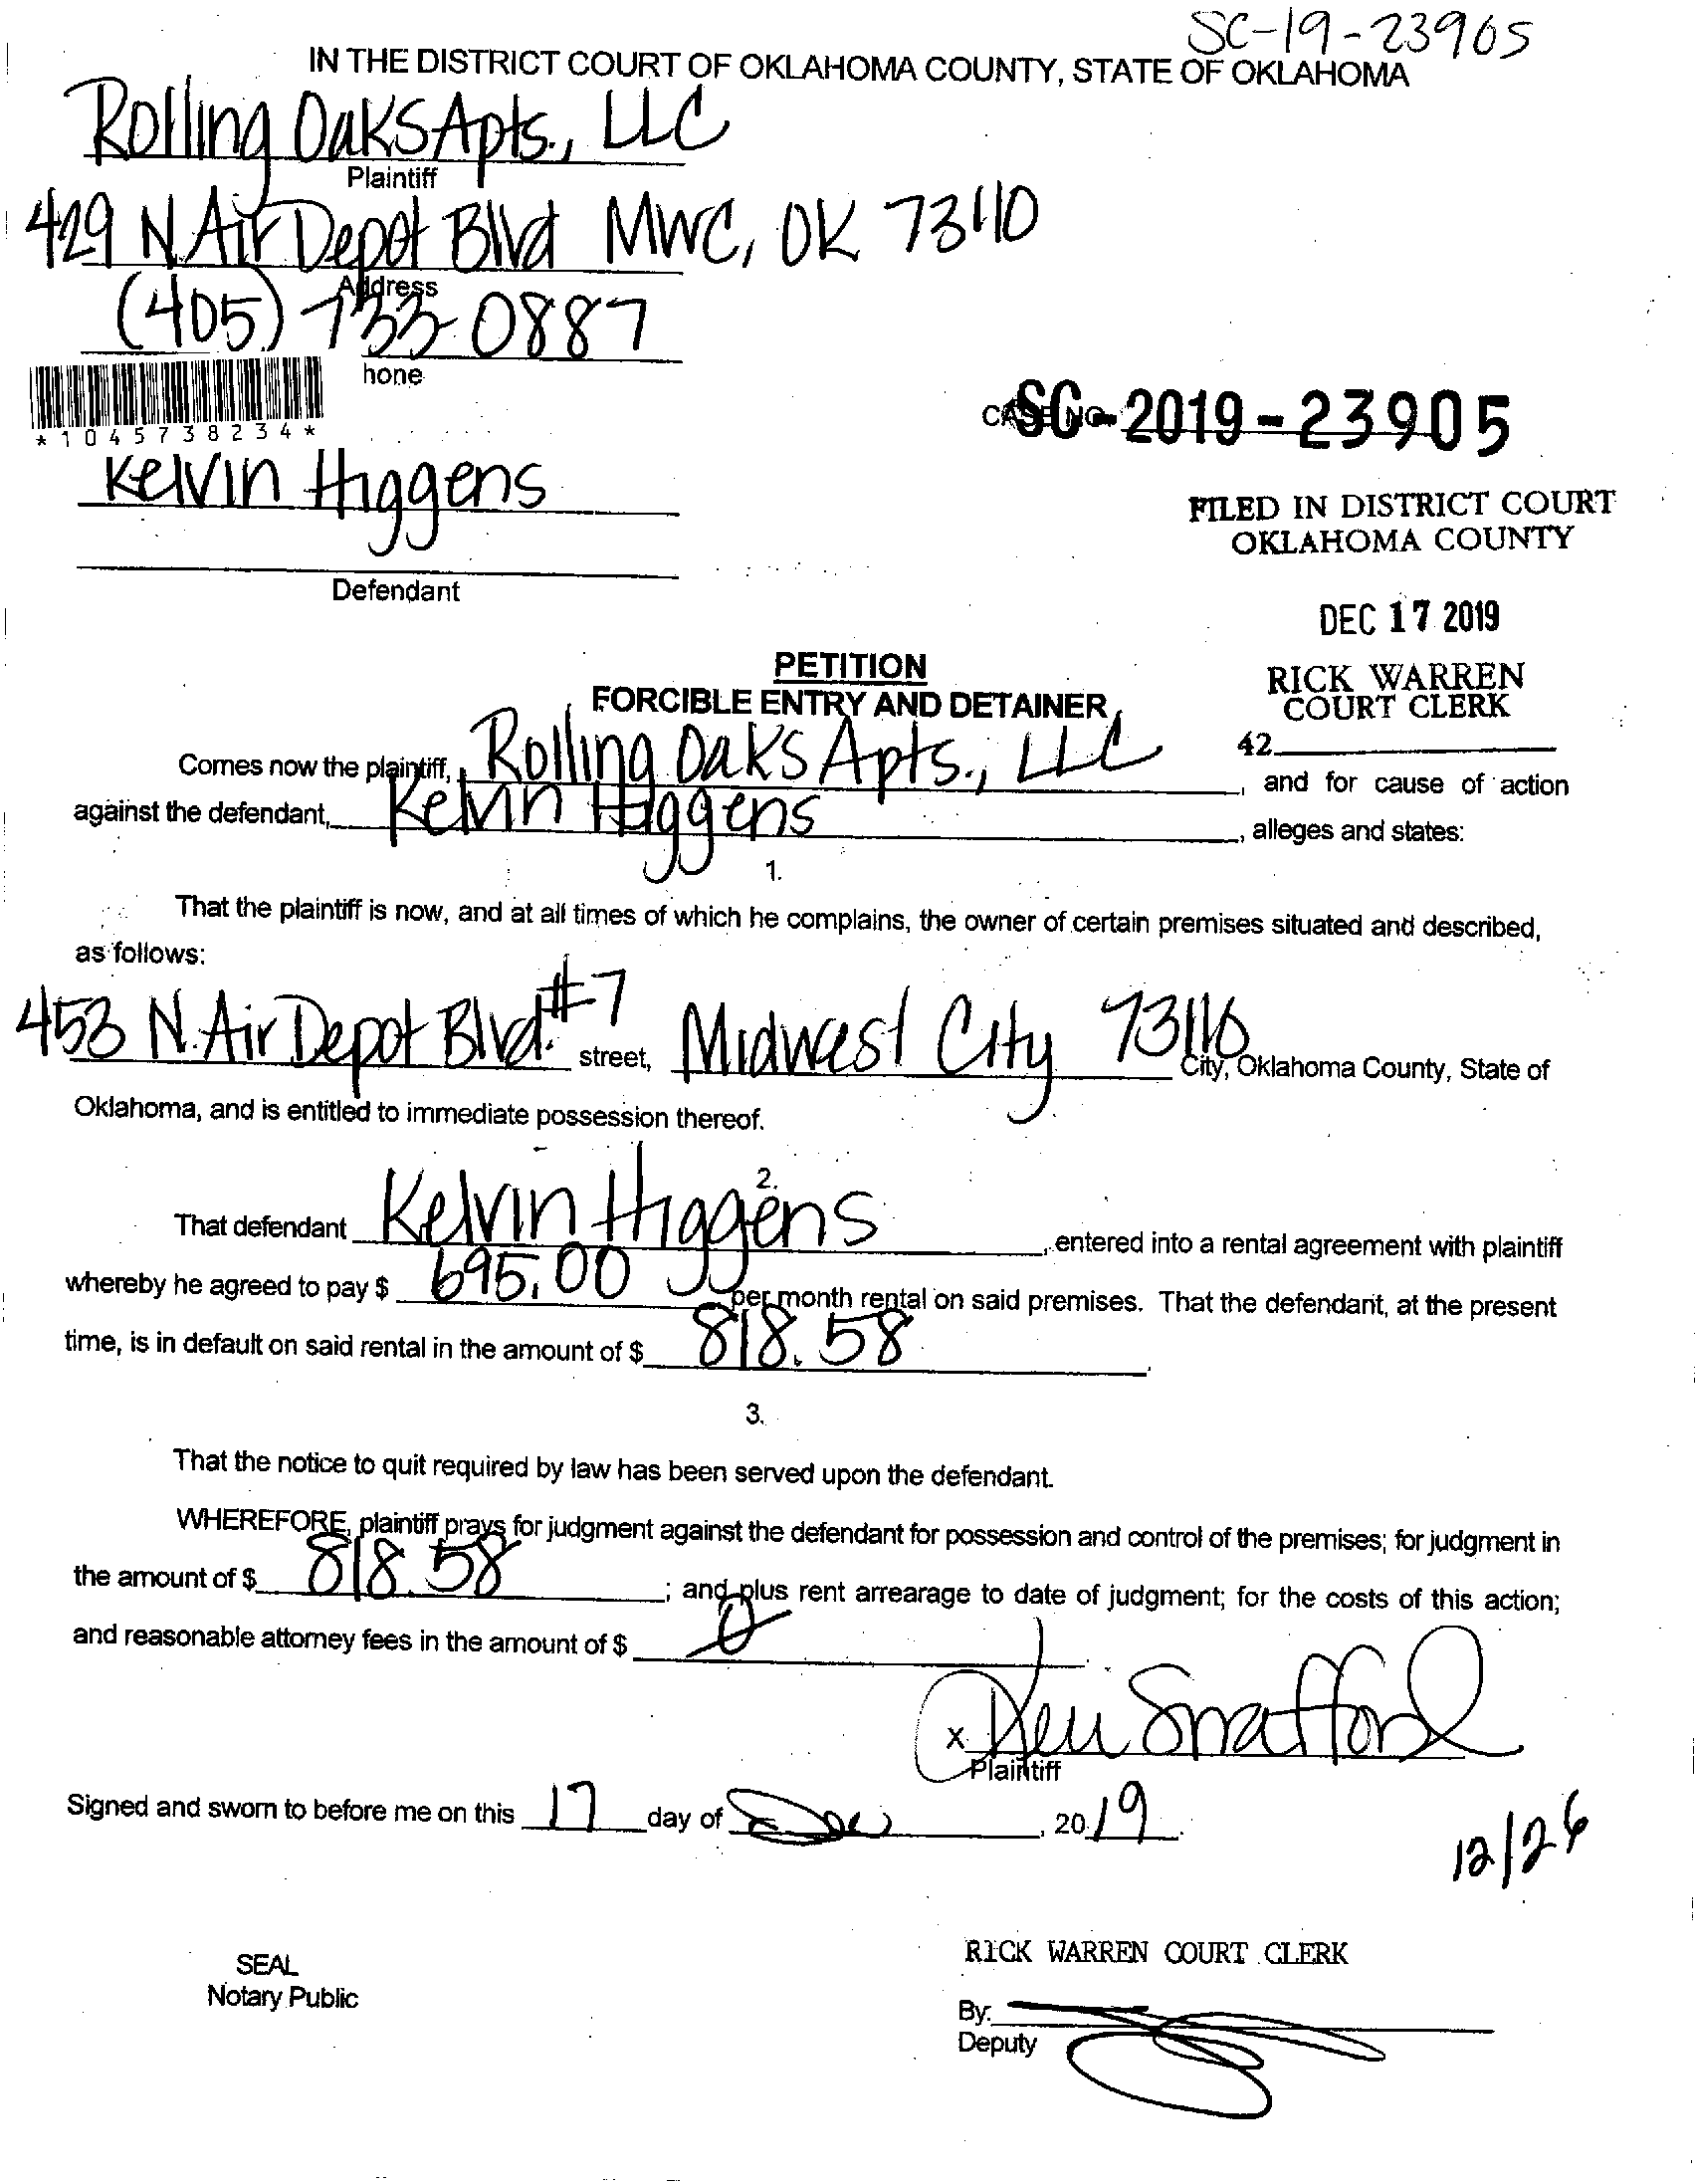 SC-19-23905
IN THE DISTRICT COURT OF OKLAHOMA COUNTY, STATE OF OKLAHOMA
Rolling Oaks Apts., LLC
Plaintiff
429 N. Air Depot Blvd MWC, OK 73110
Address
(405) 733-0887
hone
*1045738234*
CASE NO. SC-2019-23905
Kelvin Higgens
FILED IN DISTRICT COURT
OKLAHOMA COUNTY
Defendant
DEC 17 2019
PETITION
FORCIBLE ENTRY AND DETAINER
RICK WARREN
COURT CLERK
42
Comes now the plaintiff, Rolling Oaks Apts., LLC, and for cause of action
against the defendant, Kelvin Higgens, alleges and states:
1.
That the plaintiff is now, and at all times of which he complains, the owner of certain premises situated and described,
as follows:
453 N. Air Depot Blvd. #7 street, Midwest City 73110 City, Oklahoma County, State of
Oklahoma, and is entitled to immediate possession thereof.
2.
That defendant Kelvin Higgens, entered into a rental agreement with plaintiff
whereby he agreed to pay $ 695.00 per month rental on said premises. That the defendant, at the present
time, is in default on said rental in the amount of $ 818.58.
3.
That the notice to quit required by law has been served upon the defendant.
WHEREFORE, plaintiff prays for judgment against the defendant for possession and control of the premises; for judgment in
the amount of $ 818.58; and plus rent arrearage to date of judgment; for the costs of this action;
and reasonable attorney fees in the amount of $ 0.
x
Plaintiff
Signed and sworn to before me on this 17 day of Dec, 2019.
12/26
RICK WARREN COURT CLERK
SEAL
Notary Public
By:
Deputy